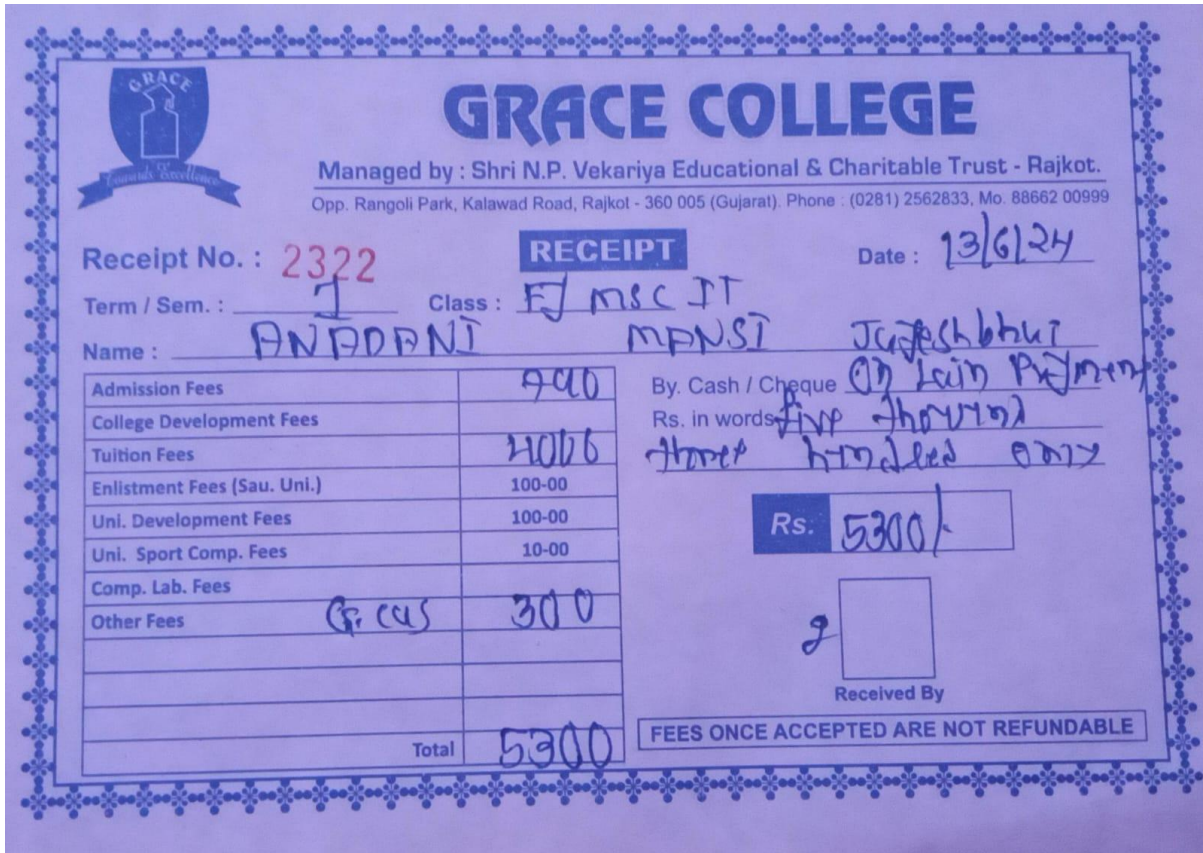 GRACE
Towards Excellence
GRACE COLLEGE
Managed by : Shri N.P. Vekariya Educational & Charitable Trust - Rajkot.
Opp. Rangoli Park, Kalawad Road, Rajkot - 360 005 (Gujarat). Phone : (0281) 2562833, Mo. 88662 00999
Receipt No. : 2322 RECEIPT Date : 13/6/24
Term / Sem. : 1 Class : FJ MSC IT
Name : ANADANI MANSI
Admission Fees 790
College Development Fees
Tuition Fees 4000
Enlistment Fees (Sau. Uni.) 100-00
Uni. Development Fees 100-00
Uni. Sport Comp. Fees 10-00
Comp. Lab. Fees
Other Fees G. cas 300
Total 5300
By. Cash / Cheque On Lain Payment
Rs. in words five
only
Rs. 5300/-
Received By
FEES ONCE ACCEPTED ARE NOT REFUNDABLE